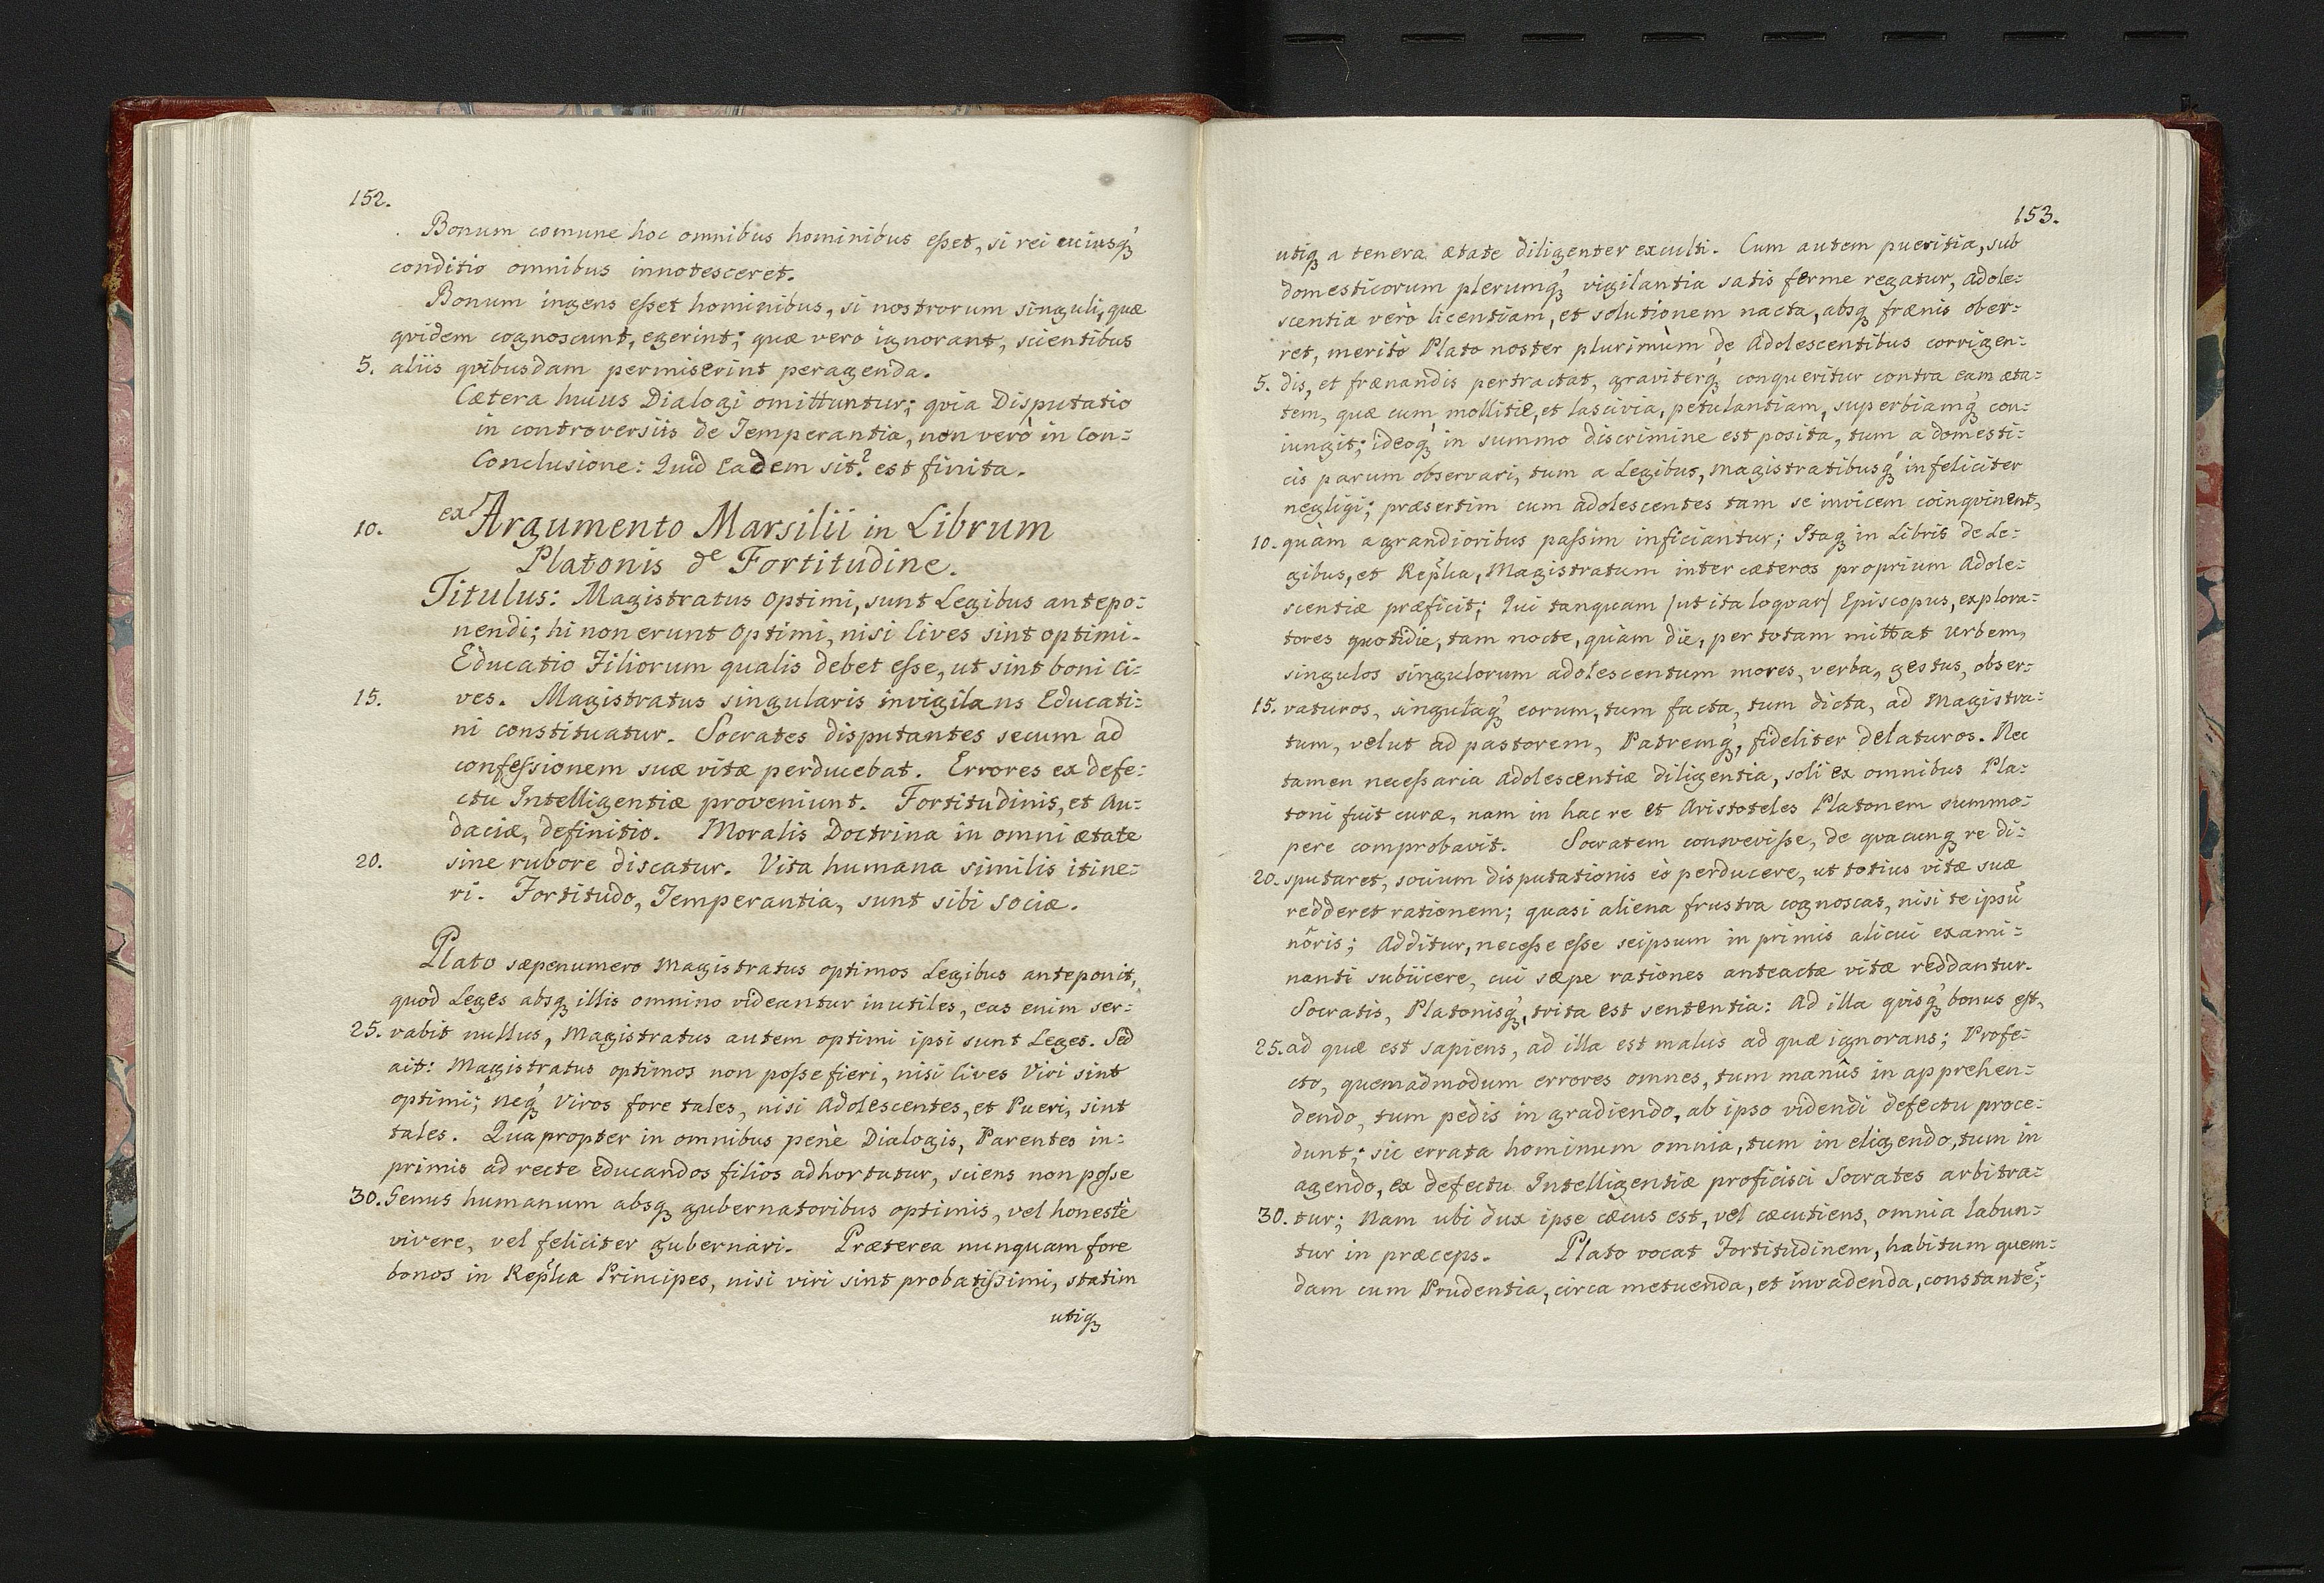 152.
Bonum comune hoc omnibus hominibus eſset, si rei cuiusq́ꝫ
conditio omnibus innotesceret.
Bonum ingens eſset hominibus, si nostrorum singuli, quæ
qvidem cognoscunt, egerint; quæ vero ignorant, scientibus
5. aliis qvibusdam permiserint peragenda.
Cætera huius Dialogi omittuntur; qvia Disputatio
in controversiis de Temperantia, non verò in Con:
Conclusione: Quid eadem sit? est finita.
10. ex Argumento Marsilii in Librum
Platonis de Fortitudine.
Titulus: Magistratus optimi, sunt Legibus antepo:
nendi; hi non erunt optimi, nisi Cives sint optimi.
Educatio Filiorum qualis debet eſse, ut sint boni Ci:
15. ves. Magistratus singularis invigilans Educati:
ni constituatur. Socrates disputantes secum ad
confeſsionem suæ vitæ perducebat. Errores ex defe:
ctu Intelligentiæ proveniunt. Fortitudinis, et Au:
daciæ, definitio. Moralis Doctrina in omni ætate
20. sine rubore discatur. Vita humana similis itine:
ri. Fortitudo, Temperantia, sunt sibi sociæ.
Plato sæpenumero Magistratus optimos Legibus anteponit,
quod Leges absqꝫ illis omnino videantur inutiles, eas enim ser:
25. vabit nullus, Magistratus autem optimi ipsi sunt Leges. Sed
ait: Magistratus optimos non poſse fieri, nisi Cives Viri sint
optimi; neq́ꝫ Viros fore tales, nisi Adolescentes, et Pueri, sint
tales. Quapropter in omnibus penè Dialogis, Parentes in:
primis ad recte educandos filios adhortatur, sciens non poſse
30. Genus humanum absqꝫ gubernatoribus optimis, vel honestè
vivere, vel feliciter gubernari. Præterea nunquam fore
bonos in Rep̃lica Principes, nisi viri sint probatiſsimi, statim
utiqꝫ
153.
utiqꝫ a tenera ætate diligenter exculti. Cum autem pueritia, sub
domesticorum plerumq́ꝫ vigilantia satis ferme regatur, Adole:
scentia verò licentiam, et solutionem nacta, absqꝫ frænis ober:
ret, meritò Plato noster plurimùm de Adolescentibus corrigen:
5. dis, et frænandis pertractat, graviterq́ꝫ conqueritur contra eam æta:
tem, quæ cum mollitie, et lascivia, petulantiam, superbiamq́ꝫ con:
iungit; ideoq́ꝫ in summo discrimine est posita, tum a domesti:
cis parum observari, tum a Legibus, Magistratibusq́ꝫ infeliciter
negligi; præsertim cum adolescentes tam se invicem coinqvinent,
10. quàm a grandioribus paſsim inficiantur; Itaqꝫ in Libris de Le:
gibus, et Rep̃lica, Magistratum inter cæteros proprium Adole:
scentiæ præficit; Qui tanquam /ut ita loqvar/ Episcopus, explora:
tores quotidie, tam nocte, quàm die, per totam mittat Urbem,
singulos singulorum adolescentum mores, verba, gestus, obser:
15. vaturos, singulaq́ꝫ eorum, tum facta, tum dicta, ad Magistra:
tum, velut ad pastorem, Patremq́ꝫ, fideliter delaturos. Nec
tamen neceſsaria Adolescentiæ diligentia, soli ex omnibus Pla:
toni fuit curæ, nam in hac re et Aristoteles Platonem summo:
pere comprobavit. Socratem consveviſse, de qvacunqꝫ re di:
20. sputaret, socium disputationis eò perducere, ut totius vitæ suæ
redderet rationem; quasi aliena frustra cognoscas, nisi te ipsũ
nôris; Additur, neceſse eſse seipsum in primis alicui exami:
nanti subiicere, cui sæpe rationes anteactæ vitæ reddantur.
Socratis, Platonisq́ꝫ, trita est sententia: Ad illa qvisq́ꝫ bonus est,
25. ad quæ est sapiens, ad illa est malus ad quæ ignorans; Profe:
cto, quemadmodum errores omnes, tum manûs in apprehen:
dendo, tum pedis in gradiendo, ab ipso videndi defectu proce:
dunt; sic errata hominum omnia, tum in eligendo, tum in
agendo, ex defectu Intelligentiæ proficisci Socrates arbitra:
30. tur; Nam ubi dux ipse cæcus est, vel cæcutiens, omnia labun:
tur in præceps. Plato vocat Fortitudinem, habitum quem:
dam cum Prudentia, circa metuenda, et invadenda, constantẽ;